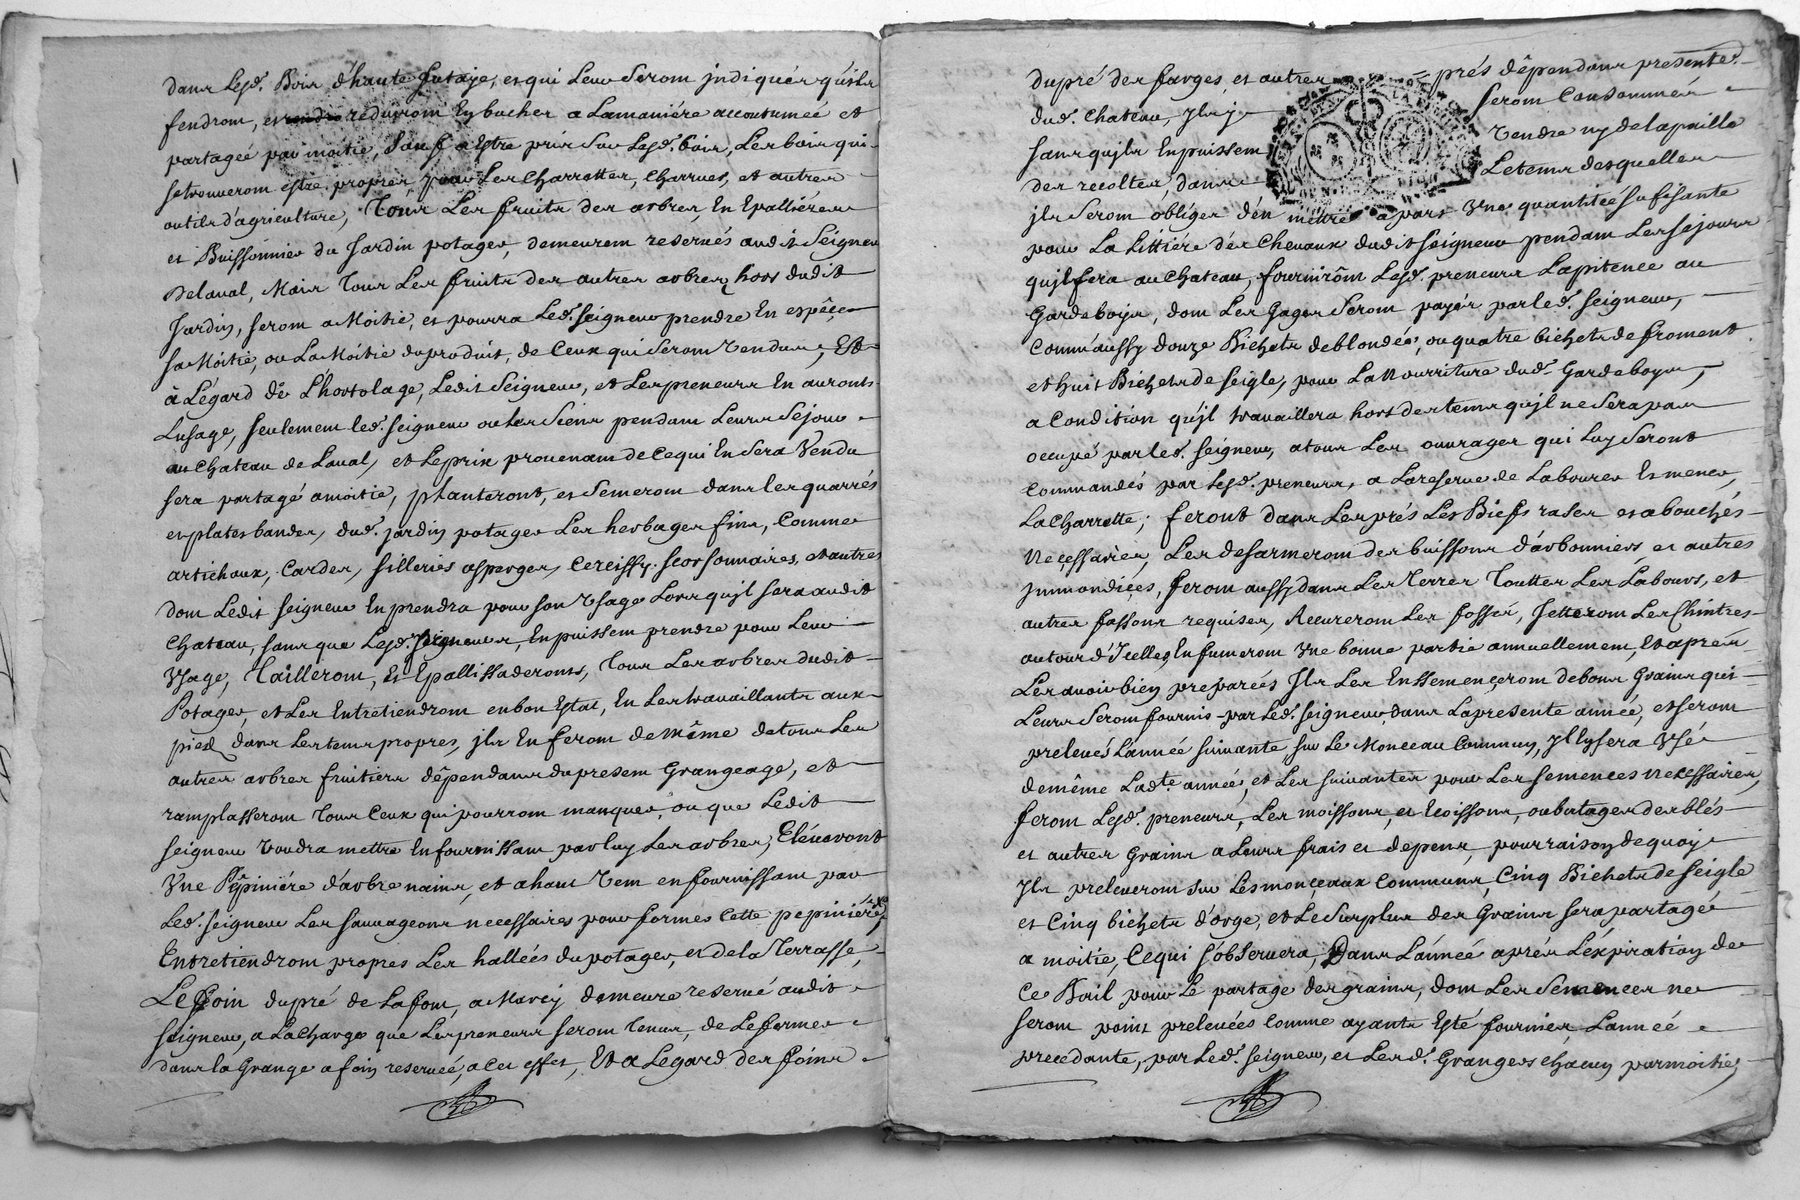 dans lesd. Bois d'haute futaye, et qui leur seront jndiqués qu'ils
fendront, et reduiront En bucher a Lamaniére accoutumée et
partagée par moitié, Sauf a Estre pris Sur lesd. bois, Les bois qui
setrouveront estre propres, pour Les charrettes, charrues, et autres
outils d'agriculture, Tous Les fruits des arbres, En Epalliéres
et Buissonnier du Jardin potager, demeurent reservés audit Seigneur
Delaval, Mais Tous Les fruits des autres arbres hors dudit
Jardin, seront a Moitié, et pourra Led. seigneur prendre En espêce
sa Moitié, ou La Moitié du produit, de Ceux qui Seront Vendus, Et
à Légard dê L'hortolage, Ledit Seigneur, et Les preneurs En auront
Lusage, seulement led. seigneur ou les Siens pendant Leurs Sejour
au chateau de Laval, et Leprix prouenant de Cequi En Sera Vendu
sera partagé amoitié, planteront, et Semeront dans les quarrés
et plates bandes, dud. jardin potager Les herbages fins, Comme
artichaux, Cardes, silleries asperges, Cercissy. scorsonnaires, et autres
dont Ledit seigneur En prendra pour son Vsage Lors qu'jl sera audit
Chateau, sans que Lesd. seigneurs, En puissent prendre pour Leur
Vsage, Tailleront, Et Epallissaderont, Tous Les arbres dudit
Potager, et Les Entretiendront en bon Estat, En Les travaillants aux
pied dans Les tems propres, jls En feront de même de tous Les
autres arbres fruitiers dêpendans du present Grangeage, et
ramplasseront Tous Ceux qui pourront manquer, ou que Ledit
seigneur voudra mettre En fournissant par luy Les arbres, Eléveront
Vne Pêpiniére d'arbre nains, et a haut Vent en fournissant par
Led. seigneur Les sauvageons necessaires pour former Cette pepiniére,
Entretiendront propres Les hallées du potager, et de la Terrasse,
Le foin du pré de Lafont, a Marcy demeure reservé audit
Seigneur, a La charge que Les preneurs seront Tenus, de Le fermer
dans la Grange a foin reservée, a Cet effet, Et a Legard des foins
du pré des farges et autres prés dêpendans presentes
dud. chateau, Jls y seront Consommés
sans qujls En puissent Vendre ny de la paille
des recoltes, dans Le tems desquelles
jls seront obligés d'en mettre a part Vne quantitée sufisante
pour La Littiére dés Chevaux dudit seigneur pendant Les sejours
qujl fera au Chateau, fourniront Lesd. preneurs Lapitence au
Gardeboyer, dont Les Gages Seront payés par led. seigneur,
Comm'aussy douze Bichets de blondée, ou quatre bichets de froment
et huit Bichets de seigle, pour La Nourriture dud. Gardeboyer,
a Condition qu'jl travaillera hors des tems qujl ne Sera pas
occupé par led. seigneur, a tous Les ouvrages qui luy Seront
Commandés par lesd. preneurs, a Lareserve de Labourer Et mener
La charrette; feront dans Les prés Les Biefs rases et abouchés
Necessaires, Les desarmeront des buissons d'arbonniers et autres
jmmondices, feront aussy dans Les Terres Toutes Les Labours, et
autres fassons requises, Recureront Les fossés, Jetteront Les Chintres
autour d'Jcelles, En fumeront Vne bonne partie annuellement, Et aprés
Les avoir bien preparées Jls Les Enssemençeront debons Grains qui
Leurs Seront fournis par Led. seigneur dans Lapresente année, et seront
prelevés Lannée suivante sur Le Monceau Commun, Jl lysera Vsé
demême Ladte. année, et Les suivantes pour Les semences Necessaires,
feront Lesd. preneurs, Les moissons, et Ecoissons, ou batages des blés
et autres Grains a Leurs frais et depens, pour raison dequoy
Jls preleveront sur Les monceaux Communs, Cinq Bichets de seigle
et Cinq bichets d'orge, et Le Surplus des Grains sera partagée
a moitie, Cequi s'observera, Dans L'année aprés L'éxpiration de
Ce Bail pour Le partage des grains, dont Les Semences ne
seront point prelevées Comme ayants Esté fournies, Lannée
precedante, par Led. seigneur, et Lesd. Grangers chacun par moitié,